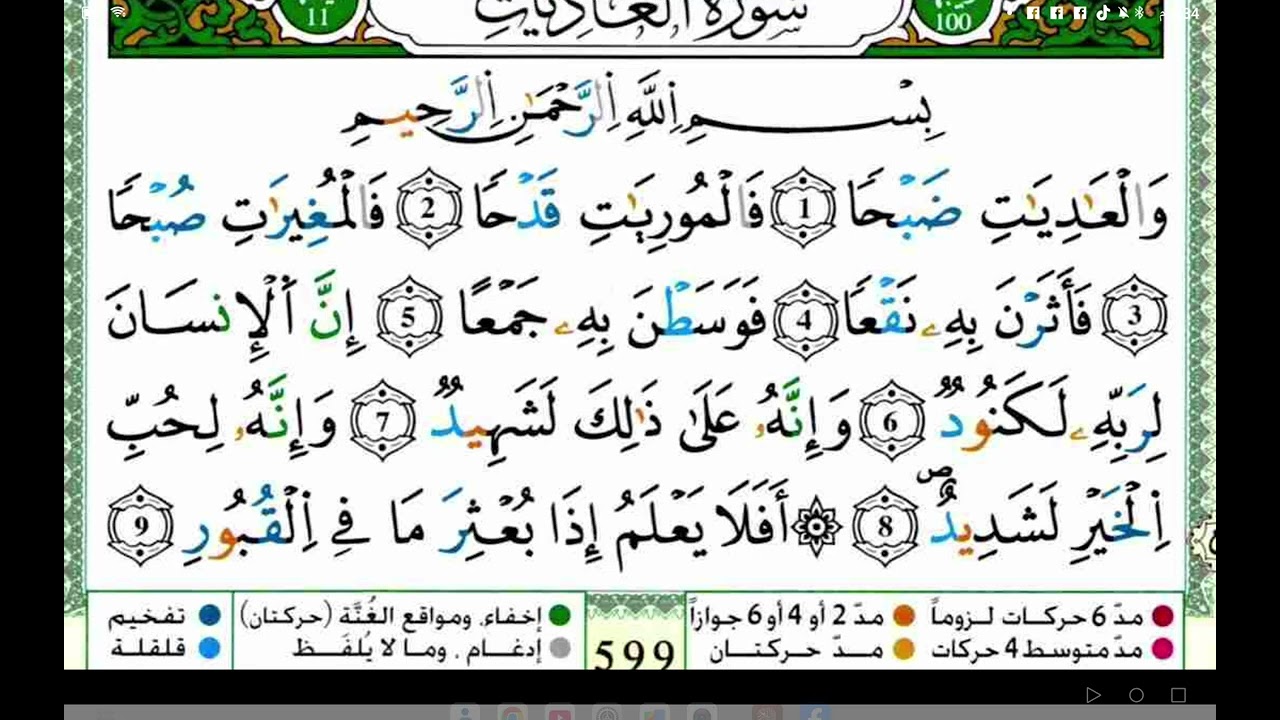 سورة العاديات
11
100
بِسْمِ اِ۬للَّهِ اِ۬لرَّحْمَٰنِ اِ۬لرَّحِيمِ
وَالْعَٰدِيَٰتِ ضَبْحًا 1 فَالْمُورِيَٰتِ قَدْحًا 2 فَالْمُغِيرَٰتِ صُبْحًا
3 فَأَثَرْنَ بِهِۦ نَقْعًا 4 فَوَسَطْنَ بِهِۦ جَمْعًا 5 إِنَّ اَ۬لْإِنسَانَ
لِرَبِّهِۦ لَكَنُودٌ 6 وَإِنَّهُۥ عَلَىٰ ذَٰلِكَ لَشَهِيدٌ 7 وَإِنَّهُۥ لِحُبِّ
اِ۬لْخَيْرِ لَشَدِيدٌ ۖ 8 ۞ أَفَلَا يَعْلَمُ إِذَا بُعْثِرَ مَا فِي اِ۬لْقُبُورِ 9
مدّ 6 حركات لزوماً مدّ 2 أو 4 أو 6 جوازاً إخفاء، ومواقع الغُنَّة (حركتان) تفخيم
مدّ متوسط 4 حركات مدّ حركتان 599 إدغام، وما لا يُلفَظ قلقلة